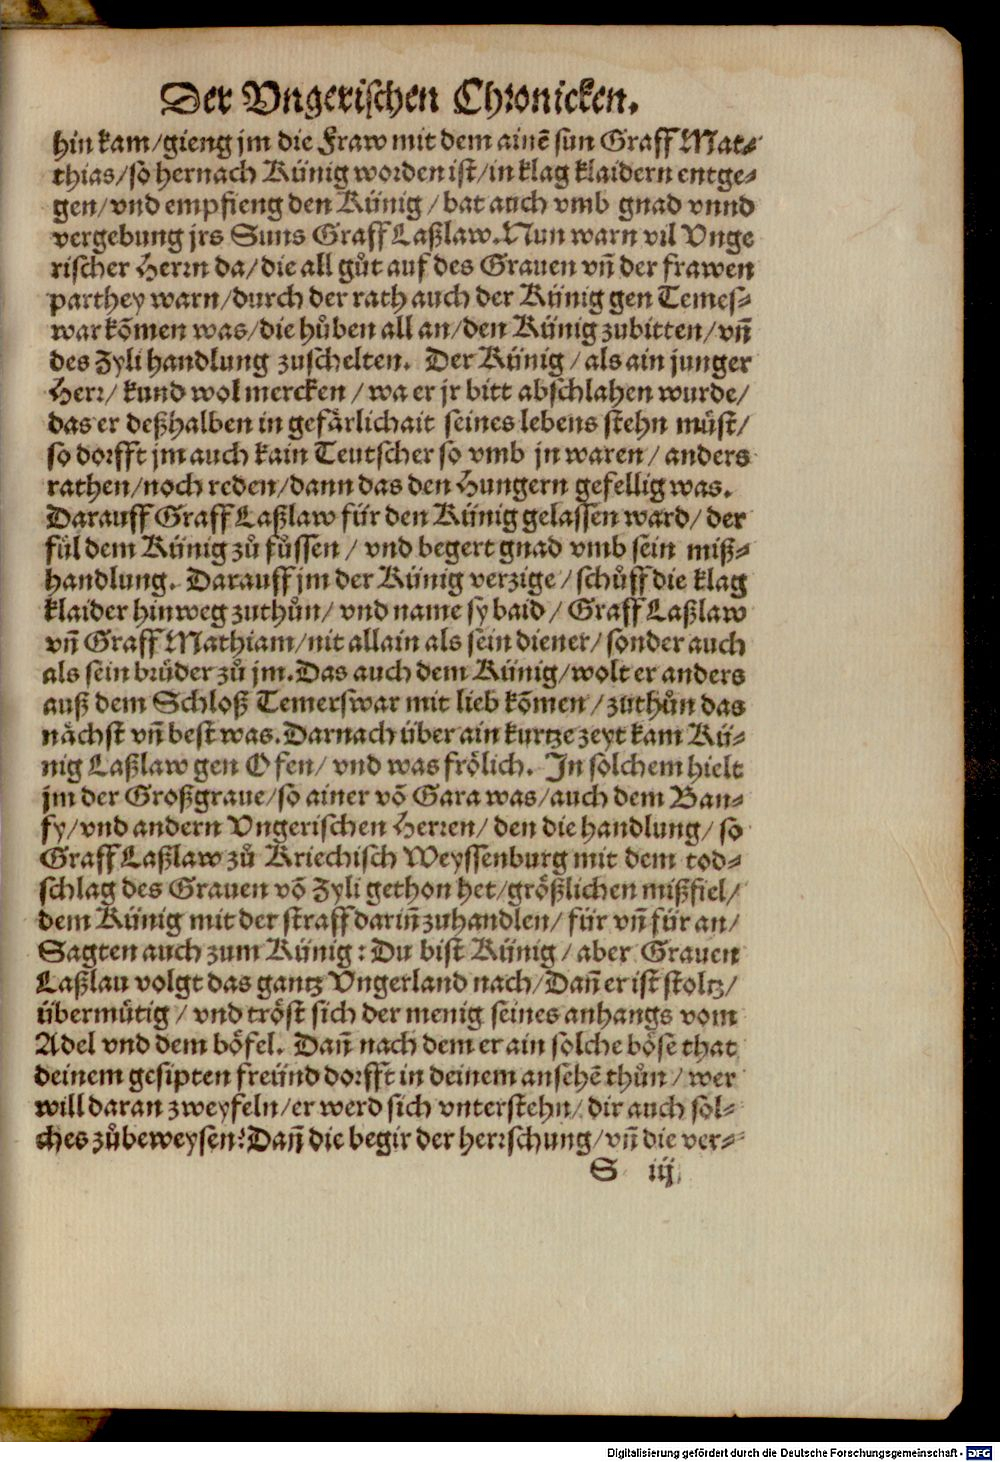 Der Vngerischen Chronicken.
hin kam/gieng jm die Fraw mit dem ainē sun Graff Mat-
thias/so hernach Künig worden ist/in klag klaidern entge-
gen/vnd empfieng den Künig/bat auch vmb gnad vnnd
vergebung jrs Suns Graff Laßlaw. Nun warn vil Vnge
rischer Herrn da/die all gůt auf des Grauen vñ der frawen
parthey warn/durch der rath auch der Künig gen Temes-
war kōmen was/die hůben all an/den Künig zubitten/vñ
des Zyli handlung zuschelten. Der Künig/als ain junger
Herr/kund wol mercken/wa er jr bitt abschlahen wurde/
das er deßhalben in gefärlichait seines lebens stehn müst/
so dorfft jm auch kain Teutscher so vmb jn waren/anders
rathen/noch reden/dann das den Hungern gefellig was.
Darauff Graff Laßlaw für den Künig gelassen ward/der
fül dem Künig zů fůssen/vnd begert gnad vmb sein miß-
handlung. Darauff jm der Künig verzige/schůff die klag
klaider hinweg zuthůn/vnd name sy baid/Graff Laßlaw
vñ Graff Mathiam/nit allain als sein diener/sonder auch
als sein brüder zů jm. Das auch dem Künig/wolt er anders
auß dem Schloß Temerswar mit lieb kōmen/zuthůn das
nächst vñ best was. Darnach über ain kurtze zeyt kam Kü-
nig Laßlaw gen Ofen/vnd was frölich. In solchem hielt
jm der Großgraue/so ainer vō Gara was/auch dem Ban-
fy/vnd andern Vngerischen Herren/den die handlung/so
Graff Laßlaw zů Kriechisch Weyssenburg mit dem tod-
schlag des Grauen vō Zyli gethon het/größlichen mißfiel/
dem Künig mit der straff dariñ zuhandlen/für vñ für an/
Sagten auch zum Künig: Du bist Künig/aber Grauen
Laßlau volgt das gantz Vngerland nach/Dañ er ist stoltz/
übermütig/vnd tröst sich der menig seines anhangs vom
Adel vnd dem böfel. Dañ nach dem er ain solche böse that
deinem gesipten freünd dorfft in deinem ansehē thůn/wer
will daran zweyfeln/er werd sich vnterstehn/dir auch sol-
ches zůbeweysen? Dañ die begir der herrschung/vñ die ver-
S iij
Digitalisierung gefördert durch die Deutsche Forschungsgemeinschaft - DFG